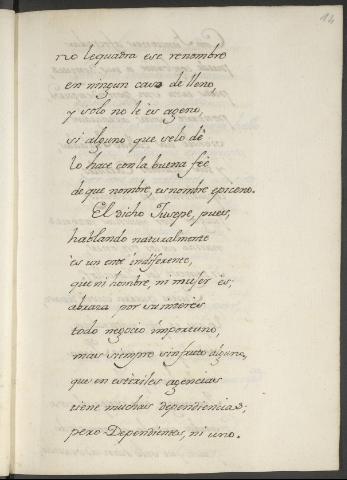 14
no lequadra ese renombre
en ningun caso de lleno,
y solo no le ès ageno,
si alguno que selo dè
lo hace con la buena fèe
de que nombre, es nombre epiceno.
El dicho Jusepe, pues,
hablando naturalmente
ès un ente indiferente,
que ni hombre, ni mujer ès;
abraza por su interès
todo negocio importuno,
mas siempre sin fruto alguno,
que en estèriles agencias
tiene muchas dependiencias;
pero Dependientes, ni uno.